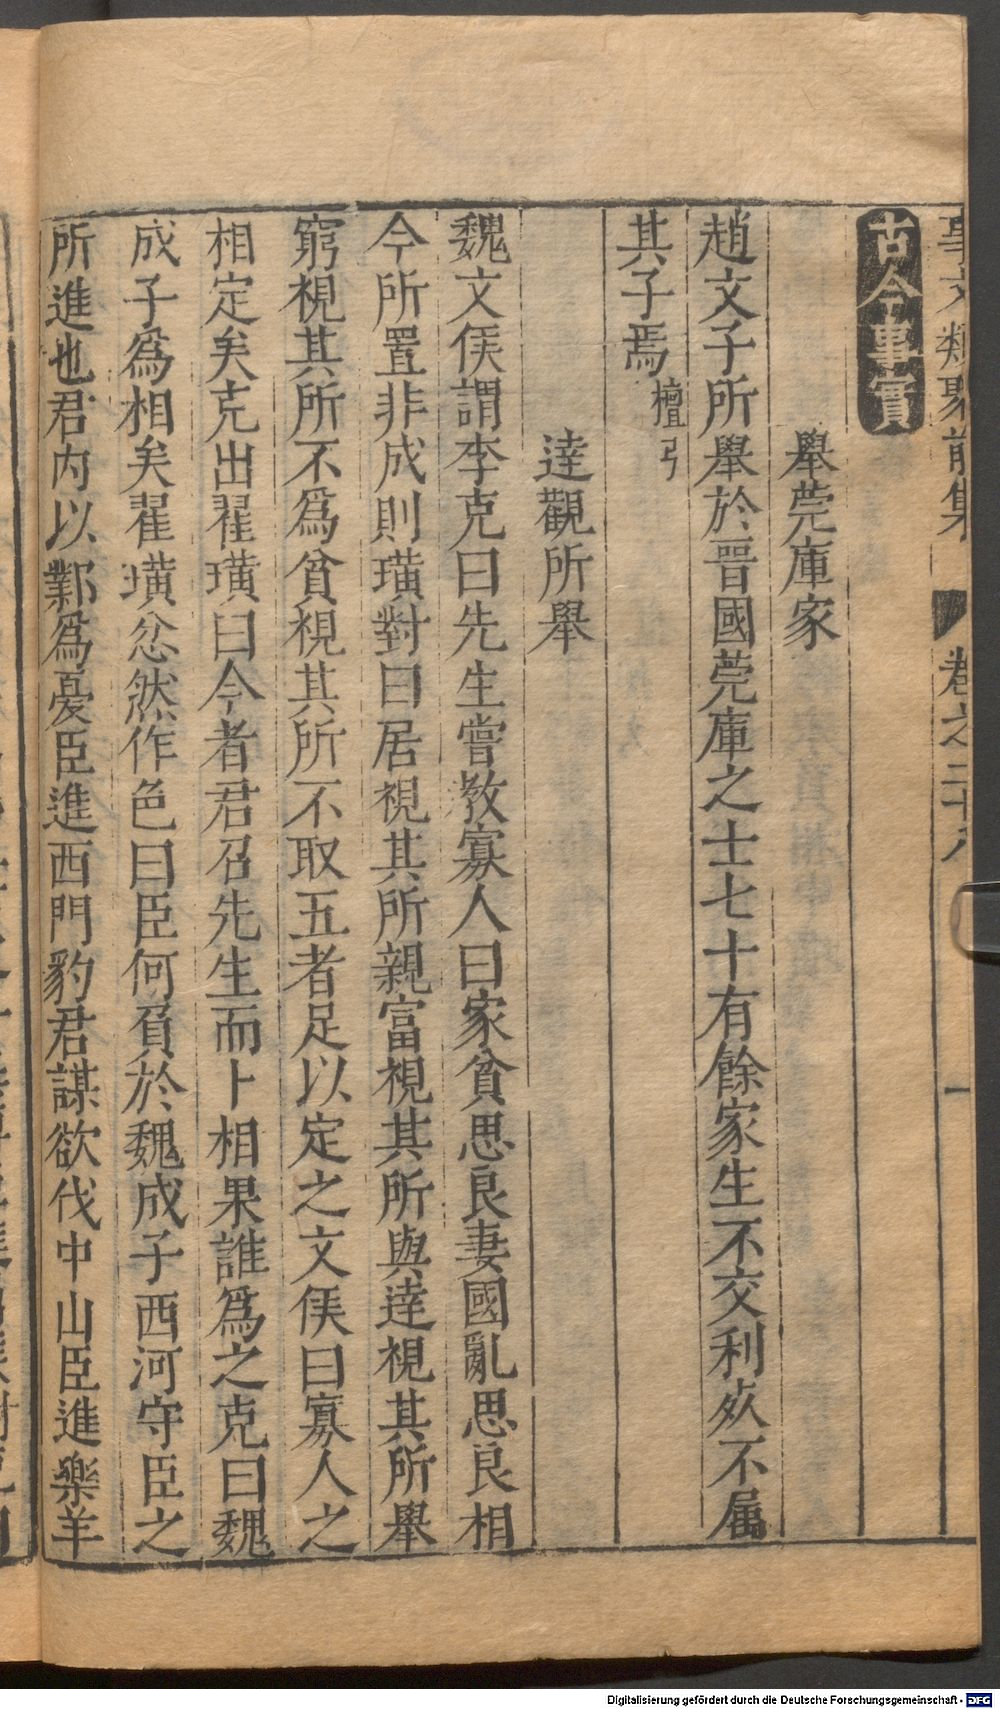 事文類聚前集 卷之二十八 一
古今事實
舉莞庫家
趙文子所舉於晉國莞庫之士七十有餘家生不交利夶不属
其子焉檀弓
達觀所舉
魏文侯謂李克曰先生嘗教寡人曰家貧思良妻國亂思良相
今所置非成則璜對曰居視其所親富視其所與達視其所舉
窮視其所不為貧視其所不取五者足以定之文侯曰寡人之
相定矣克出翟璜曰今者君召先生而卜相果誰為之克曰魏
成子為相矣翟璜忿然作色曰臣何負於魏成子西河守臣之
所進也君內以鄴為憂臣進西門豹君謀欲伐中山臣進樂羊
Digitalisierung gefördert durch die Deutsche Forschungsgemeinschaft - DFG